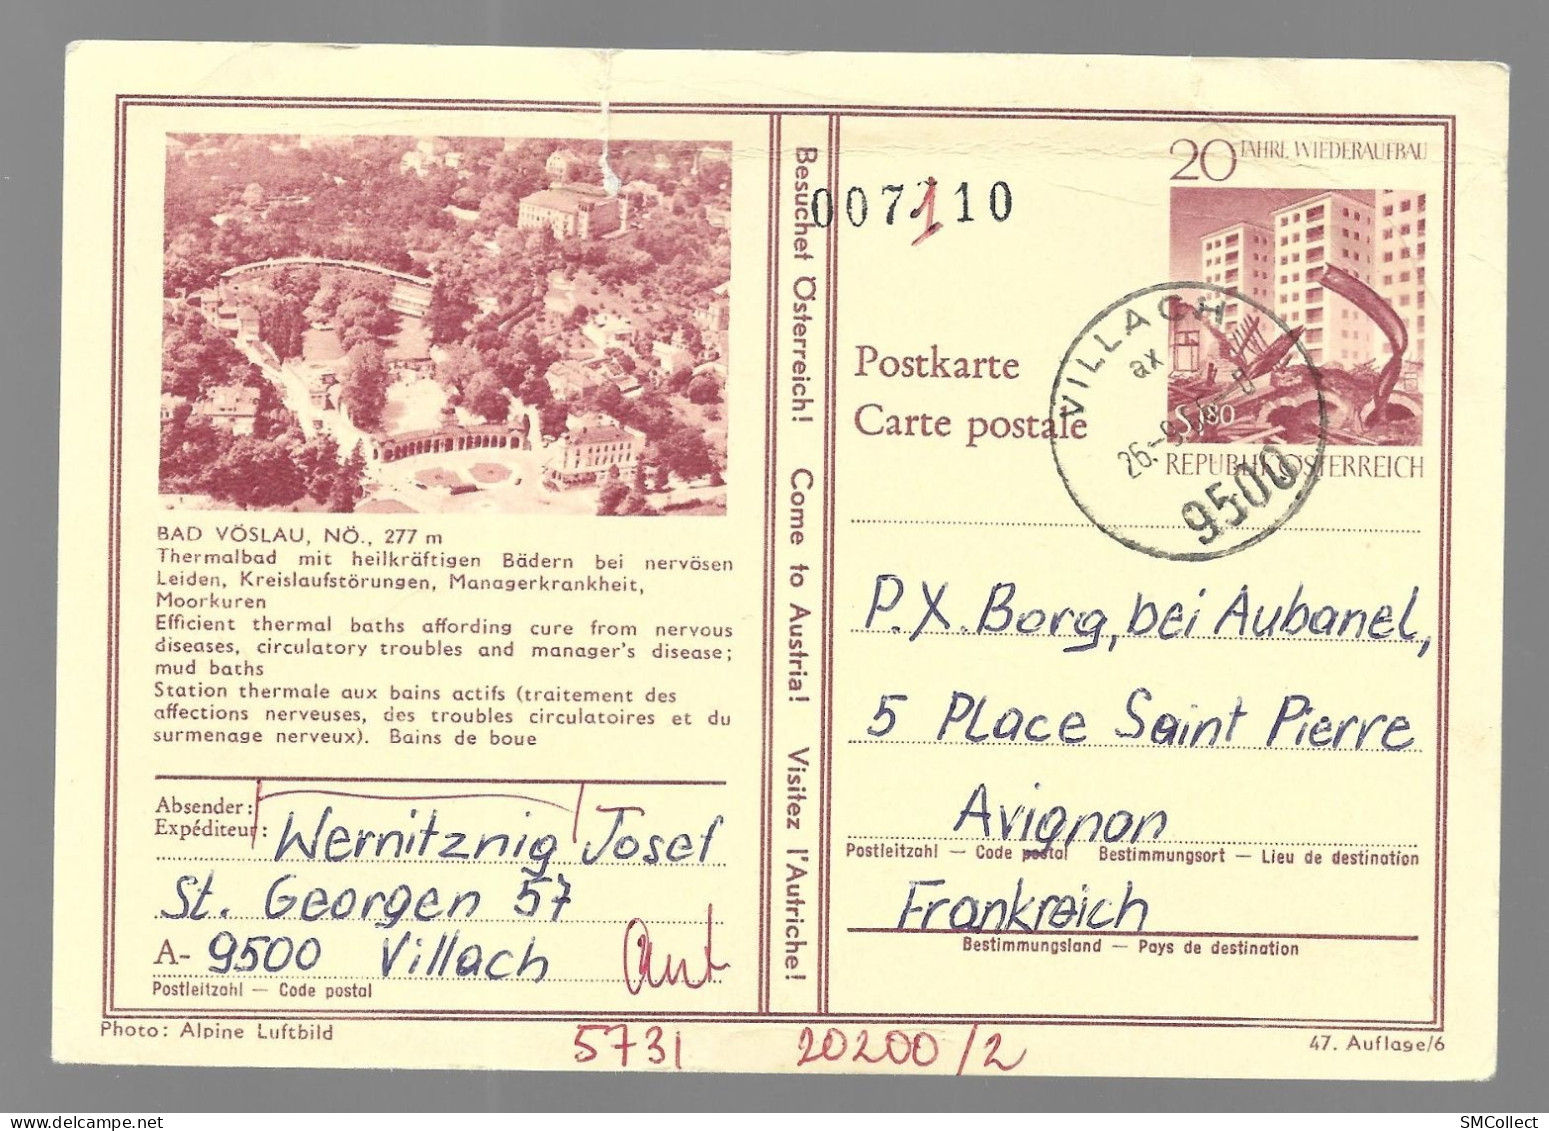 20 JAHRE WIEDERAUFBAU
S 1.80
REPUBLIK ÖSTERREICH
VILLACH
ax
9500
10
Postkarte
Carte postale
Besuchet Österreich! Come to Austria! Visitez l'Autriche!
BAD VÖSLAU, NÖ., 277 m
Thermalbad mit heilkräftigen Bädern bei nervösen
Leiden, Kreislaufstörungen, Managerkrankheit,
Moorkuren
Efficient thermal baths affording cure from nervous
diseases, circulatory troubles and manager's disease;
mud baths
Station thermale aux bains actifs (traitement des
affections nerveuses, des troubles circulatoires et du
surmenage nerveux). Bains de boue
Absender:
Expéditeur:
Wernitznig Josef
St. Georgen 57
A- 9500 Villach
Postleitzahl — Code postal
P.X. Borg, bei Aubanel,
5 Place Saint Pierre
Avignon
Postleitzahl — Code postal Bestimmungsort — Lieu de destination
Frankreich
Bestimmungsland — Pays de destination
Photo: Alpine Luftbild
5731 20200/2
47. Auflage/6
SMCollect